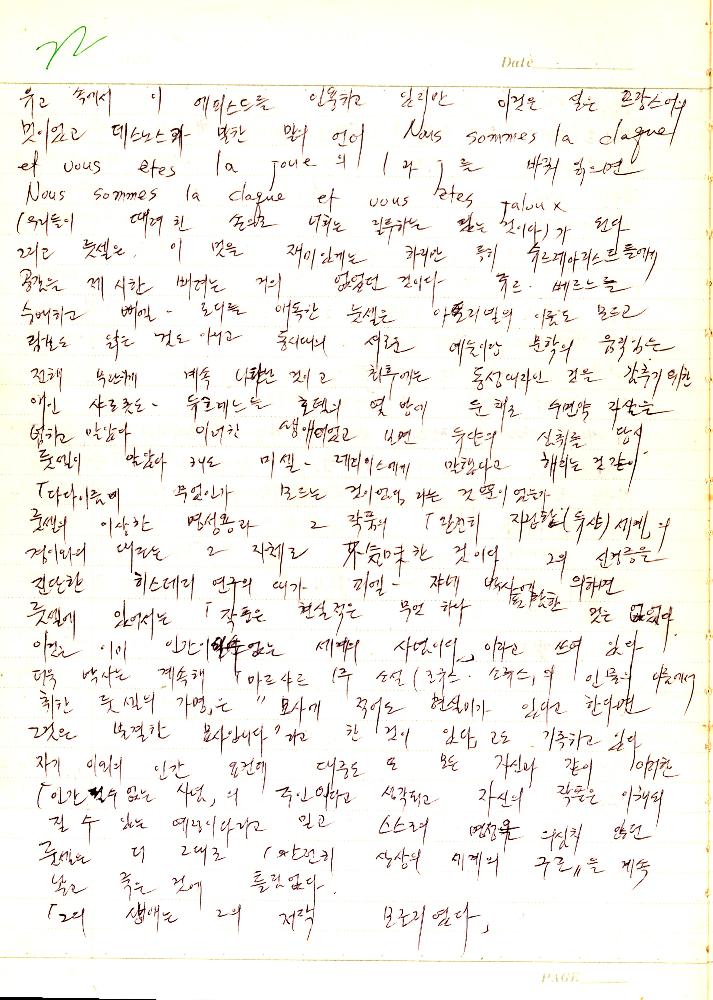 22
Date
유고 속에서 이 에피소드를 인용하고 있지만 이것은 실은 프랑스어의
멋이었고 데스노스와 말한 말의 언어 Nous sommes la claque
et vous êtes la joue 의 l 과 j 를 바꿔 읽으면
Nous sommes la claque et vous êtes jaloux
(우리들이 때려 한 손으로 너희는 질투하는 것이다) 가 된다
그리고 룻셀은, 이 멋을 재미있게는 하지만 특히 슈르레아리스트들에게
공감을 제시한 배려는 거의 없었던 것이다 쥬르·베르느를
숭배하고 삐엘-로티를 애독한 룻셀은 아폴리넬의 이름도 모르고
랭보도 읽은 것도 아니고 동시대의 새로운 예술이란 문학의 움직임은
전혀 부관하게 계속 나타난 것이고 최후에는 동성애자인 것을 감추기 위한
애인 샤로트·듀프레느를 호텔의 옆 방에 둔 채로 수면약 자살을
범하고 말았다 이러한 생애였었고 보면 듀샹의 심취를 당시
룻셀이 알았다 해도 미셀-레리스에게 말했다고 해지는 것 같이
「다다이름에 무엇인가 모르는 것이 있」 라는 것 뿐이 없는가
룻셀의 이상한 명성욕과 그 작품의 「완전히 자립함」(듀샹) 세계, 의
경이와의 대조는 그 자체로 不気味한 것이다 그의 신경증을
진단한 히스테리 연구의 대가 피엘-쟈네 박사에 의하면
룻셀에 있어서는 「작품은 현실적은 무언 하나 포함한 것은 없었다
이것은 이미 인간이 없는 세계의 사념이다」 이라고 쓰여 있다
더욱 박사는 계속해 「마르샤르 (주 소설 「로쿠스·소루스」의 인물의 이름에서
취한 룻셀의 가명,은 " 묘사에 적어도 현실미가 있다고 한다면
그것은 불결한 묘사입니다" 라고 한 것이 있다」 고도 기록하고 있다
자기 이외의 인간 요건에 대류도 또 모든 자신과 같이 이러한
「인간 일 수 없는 사념」의 주인이라고 생각되고 자신의 작품은 이해되
질 수 있는 예술이다라고 믿고 스스로의 명성을 의심치 않던
룻셀은 더 그대로 「완전히 상상의 세계의 구축」을 계속
남고 죽은 것에 틀림없다.
「그의 생애는 그의 저작 모조리였다」
PAGE